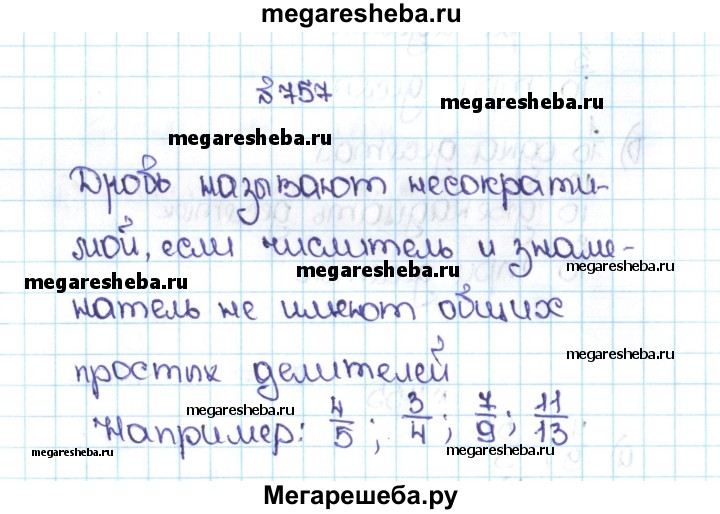 megaresheba.ru
№757
megaresheba.ru
megaresheba.ru
Дробь называют несократи-
мой, если числитель и знаме-
megaresheba.ru
megaresheba.ru
megaresheba.ru
натель не имеют общих
простых делителей
megaresheba.ru
megaresheba.ru
Например: 4/5; 3/4; 7/9; 11/13
megaresheba.ru
megaresheba.ru
Мегарешеба.ру